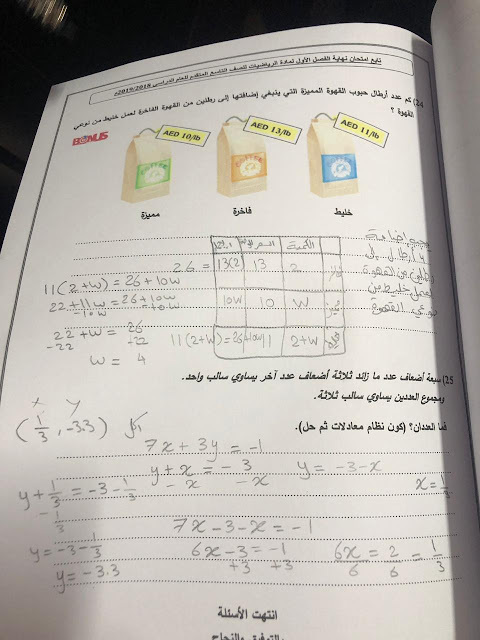 تابع امتحان نهاية الفصل الأول لمادة الرياضيات للصف التاسع المتقدم للعام الدراسي 2019/2018م
24) كم عدد أرطال حبوب القهوة المميزة التي ينبغي إضافتها إلى رطلين من القهوة الفاخرة لعمل خليط من نوعي
القهوة ؟
BONUS
AED 10/lb
AED 13/lb
AED 11/lb
مميزة
فاخرة
خليط
الكمية
السعر
يجب إضافة
4 أرطال إلى
رطلين من القهوة
لعمل خليط من
نوعي القهوة
2
13
13(2)
= 26
W
10
10W
2+W
11
11(2+W) = 26+10W
11(2+W) = 26+10W
22+11W = 26+10W
-10W
-10W
22+W = 26
-22
-22
W = 4
25) سبعة أضعاف عدد ما زائد ثلاثة أضعاف عدد آخر يساوي سالب واحد.
ومجموع العددين يساوي سالب ثلاثة.
فما العددان؟ (كون نظام معادلات ثم حل).
x y
(1/3, -3.3)
7x + 3y = -1
y + x = -3
- x - x
y = -3 - x
x = 1/3
y + 1/3 = -3 - 1/3
- 1/3
7x - 3 - x = -1
y = -3 - 1/3
6x - 3 = -1
+3 +3
6x/6 = 2/6 = 1/3
y = -3.3
انتهت الأسئلة
بالتوفيق والنجاح